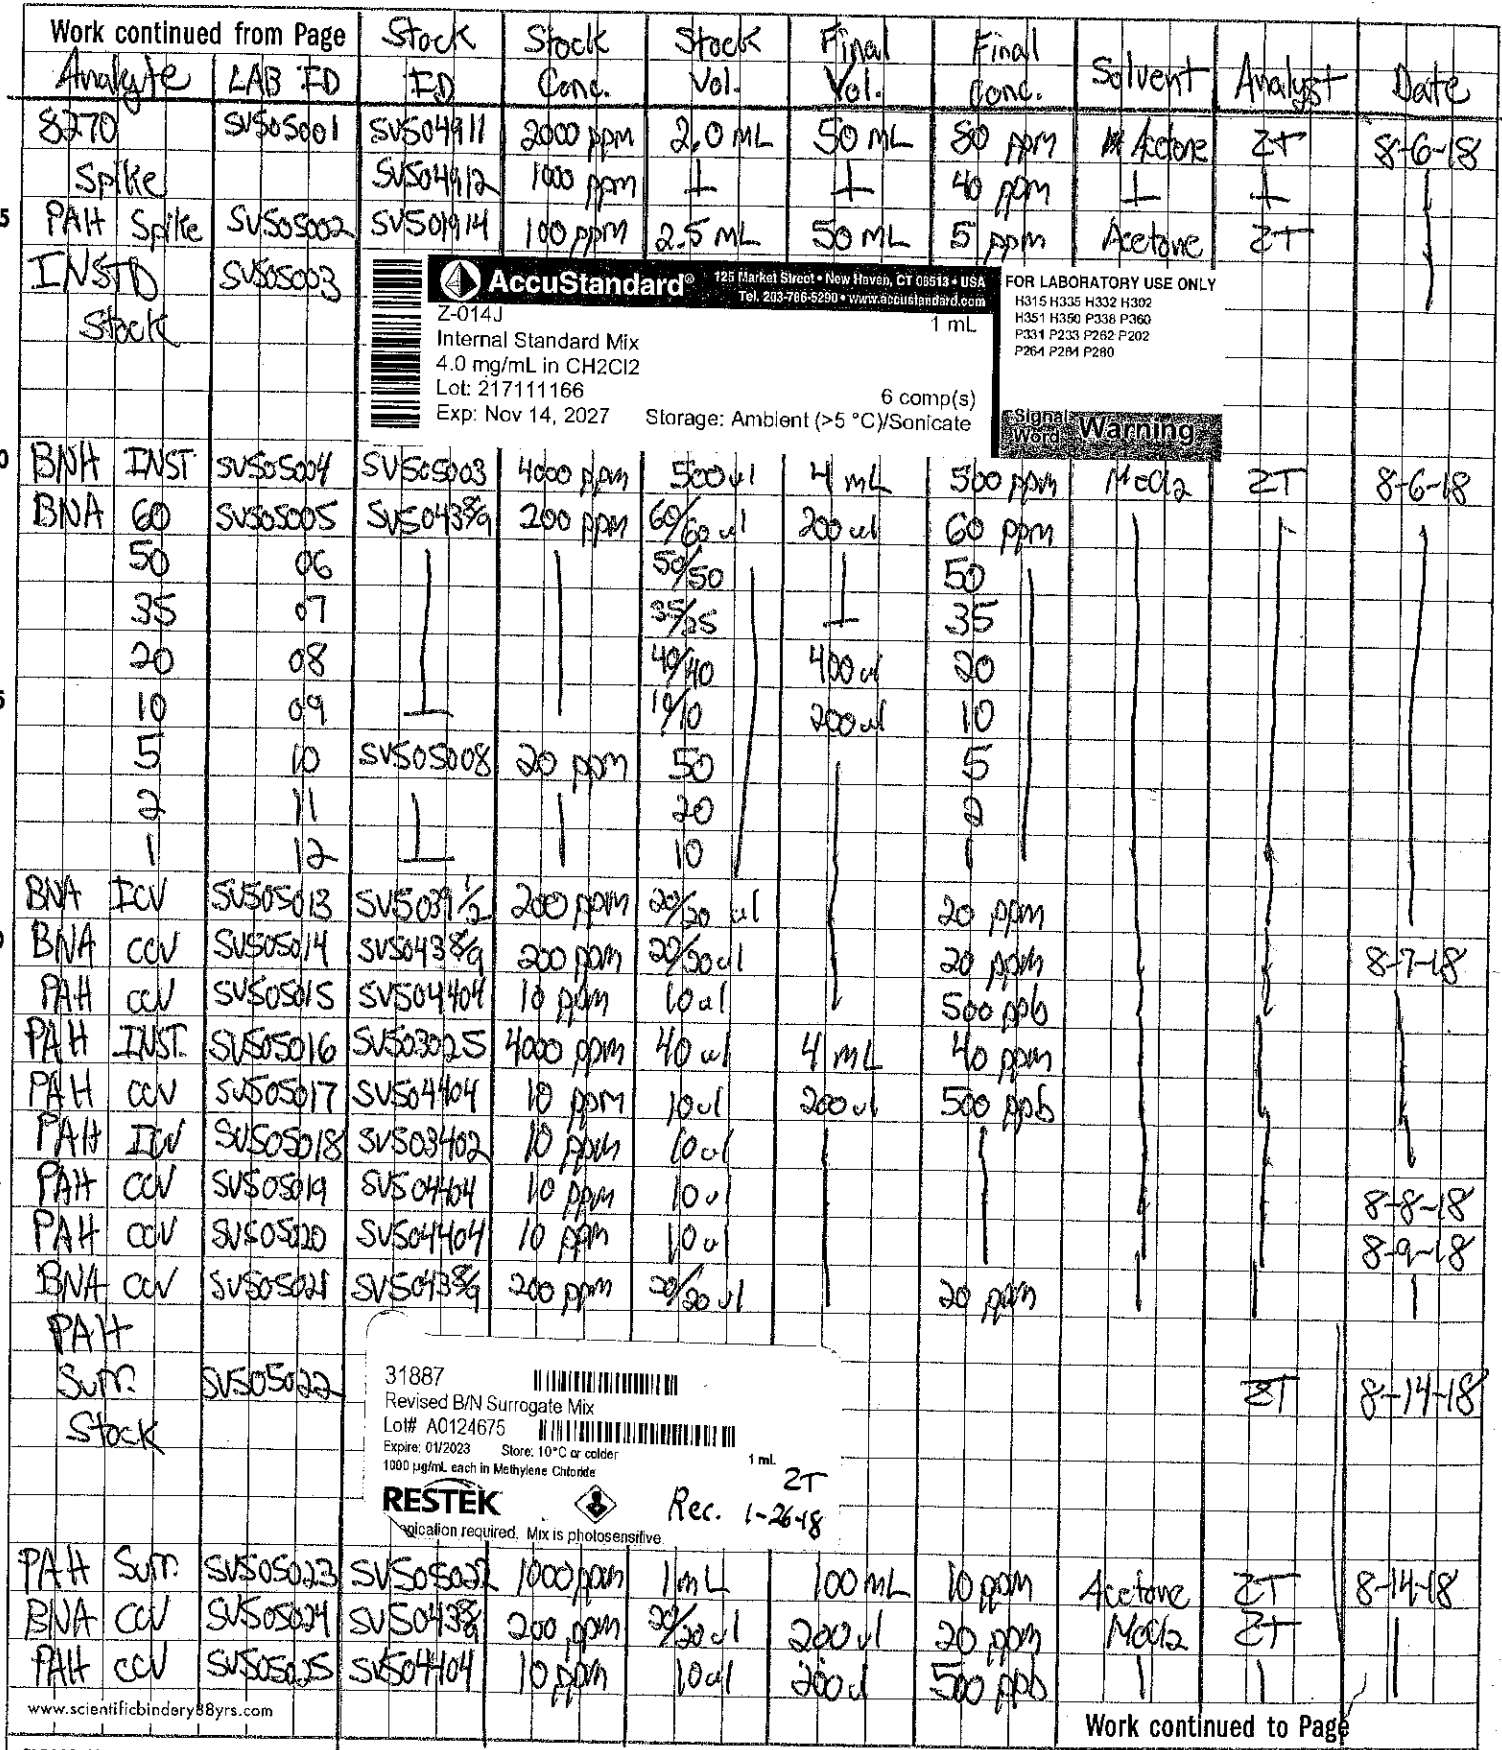 Work continued from Page Stock Stock Stock Final Final Solvent Analyst Date
Analyte LAB ID ID Conc. Vol. Vol. Conc.
8270 SV505001 SV504911 2000 ppm 2.0 mL 50 mL 80 ppm Acetone ZT 8-6-18
Spike SV504912 1000 ppm 40 ppm
PAH Spike SV505002 SV501914 100 ppm 2.5 mL 50 mL 5 ppm Acetone ZT
INSTD SV505003
Stock
AccuStandard® 125 Market Street • New Haven, CT 06513 • USA
Tel. 203-786-5290 • www.accustandard.com
Z-014J 1 mL
Internal Standard Mix
4.0 mg/mL in CH2Cl2
Lot: 217111166 6 comp(s)
Exp: Nov 14, 2027 Storage: Ambient (>5 °C)/Sonicate
FOR LABORATORY USE ONLY
H315 H335 H332 H302
H351 H350 P338 P360
P331 P233 P262 P202
P264 P281 P280
Signal Word Warning
BNA INST SV505004 SV505003 4000 ppm 500 ul 4 mL 500 ppm MeCl2 ZT 8-6-18
BNA 60 SV505005 SV50438/9 200 ppm 60/60 ul 200 ul 60 ppm
50 06 50/50 50
35 07 35/35 35
20 08 40/40 400 ul 20
10 09 10/10 200 ul 10
5 10 SV505008 20 ppm 50 5
2 11 20 2
1 12 10 1
BNA ICV SV505013 SV50391/2 200 ppm 20/20 ul 20 ppm
BNA CCV SV505014 SV50438/9 200 ppm 20/20 ul 20 ppm 8-7-18
PAH CCV SV505015 SV504404 10 ppm 10 ul 500 ppb
PAH INST. SV505016 SV503025 4000 ppm 40 ul 4 mL 40 ppm
PAH CCV SV505017 SV504404 10 ppm 10 ul 200 ul 500 ppb
PAH ICV SV505018 SV503402 10 ppm 10 ul
PAH CCV SV505019 SV504404 10 ppm 10 ul 8-8-18
PAH CCV SV505020 SV504404 10 ppm 10 ul 8-9-18
BNA CCV SV505021 SV50438/9 200 ppm 20/20 ul 20 ppm
PAH
Surr. SV505022 ZT 8-14-18
Stock
31887
Revised B/N Surrogate Mix
Lot# A0124675
Expire: 01/2023 Store: 10°C or colder
1000 µg/mL each in Methylene Chloride 1 mL
ZT
RESTEK Rec. 1-26-18
required. Mix is photosensitive
PAH Surr. SV505023 SV505022 1000 ppm 1 mL 100 mL 10 ppm Acetone ZT 8-14-18
BNA CCV SV505024 SV50438/9 200 ppm 20/20 ul 200 ul 20 ppm MeCl2 ZT
PAH CCV SV505025 SV504404 10 ppm 10 ul 200 ul 500 ppb
www.scientificbindery88yrs.com
Work continued to Page